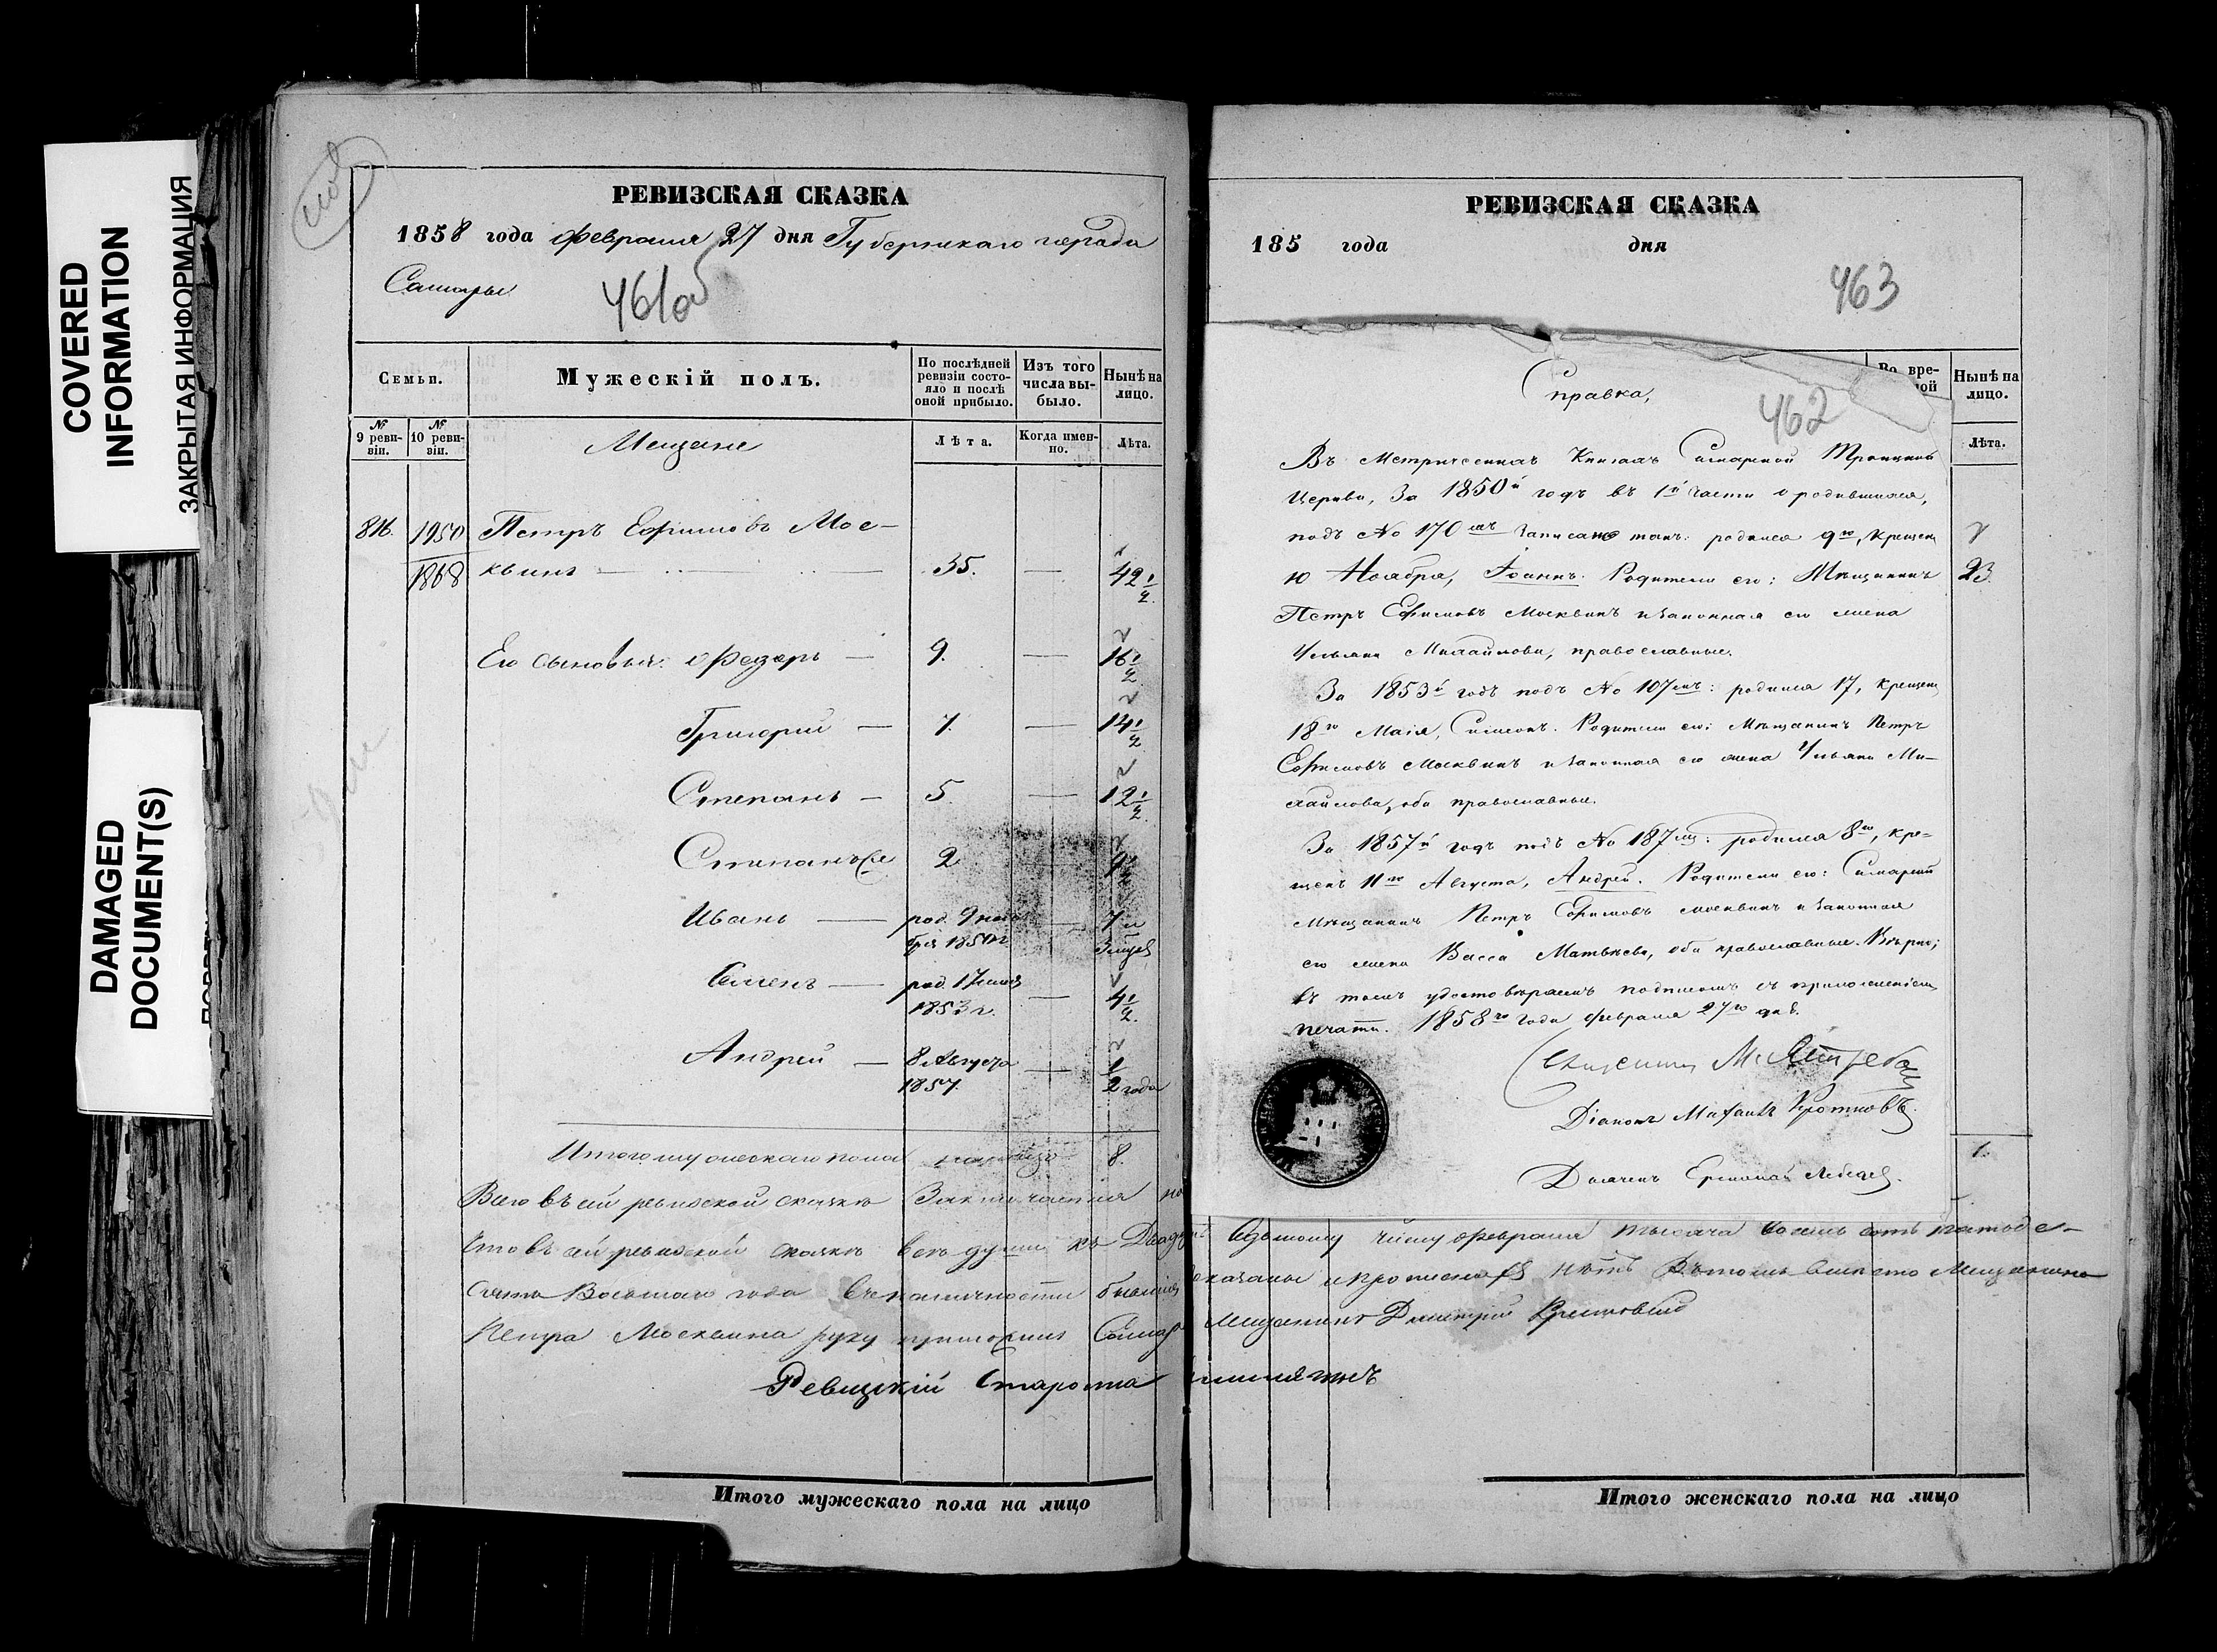 COVERED
INFORMATION
ЗАКРЫТАЯ ИНФОРМАЦИЯ
DAMAGED
DOCUMENT(S)
РЕВИЗСКАЯ СКАЗКА
1858 года февраля 27 дня Губернскаго города
Самары
461об
Семьи.
Мужескій полъ.
По послѣдней ревизіи состояло и послѣ оной прибыло.
Изъ того числа выбыло.
Нынѣ на лицо.
№ 9 ревизіи.
№ 10 ревизіи.
Мещане
Лѣта.
Когда именно.
Лѣта.
816. 1950 Петръ Ефимовъ Мос-
1868 квинъ — 35. — 42 1/2
Его сыновья: Федоръ — 9. — 16 1/2
Григорій — 7. — 14 1/2
Степанъ — 5. — 12 1/2
Степанъ 2 9 1/2
Иванъ — род. 9 ноя — 7 и
бря 1850 г. 3 мѣся
Семенъ — род. 17 мая — 4 1/2
1853 г.
Андрей — 8 Августа — 1/2 года
1857.
Итого мужескаго пола на лицо 8.
РЕВИЗСКАЯ СКАЗКА
185 года дня
463
Нынѣ на лицо.
Лѣта.
23.
1.
Справка,
462
Въ Метрическихъ Книгахъ Самарской Троицкой
Церкви, За 1850й годъ въ 1й части о родившихся,
подъ No 170мъ записано такъ: родился 9го, крещенъ
10 Ноября, Іоаннъ. Родители его: Мѣщанинъ
Петръ Ефимовъ Москвинъ и законная его жена
Ульяна Михайлова, православные.
За 1853й годъ подъ No 107мъ: родился 17, крещенъ
18го Маія, Симеонъ. Родители его: Мѣщанинъ Петръ
Ефимовъ Москвинъ и законная его жена Ульяна Ми-
хайлова, оба православные.
За 1857й годъ подъ No 187мъ: родился 8го, кре-
щенъ 11го Августа, Андрей. Родители его: Самарскій
Мѣщанинъ Петръ Ефимовъ Москвинъ и законная
его жена Васса Матвѣева, оба православные. Вѣрно;
въ томъ удостовѣряемъ подписомъ съ приложеніемъ
печати. 1858го года февраля 27го дня.
Священникъ М.
Діаконъ Михаилъ Кротковъ.
Дьячекъ Ермолай Лебедев.
Всего въ сей ревизской сказкѣ Заключается
Что въ сей ревизской сказкѣ всѣ души къ Двадцать Седьмому числу февраля тысяча восемь сотъ пятьде-
сятъ Восьмаго года въ наличности бывшія показаны и прописныхъ нѣтъ Въ томъ вместо Мещанина
Петра Москвина руку приложилъ Самар Мещанинъ Дмитрій
Ревизскій Староста
Итого мужескаго пола на лицо
Итого женскаго пола на лицо